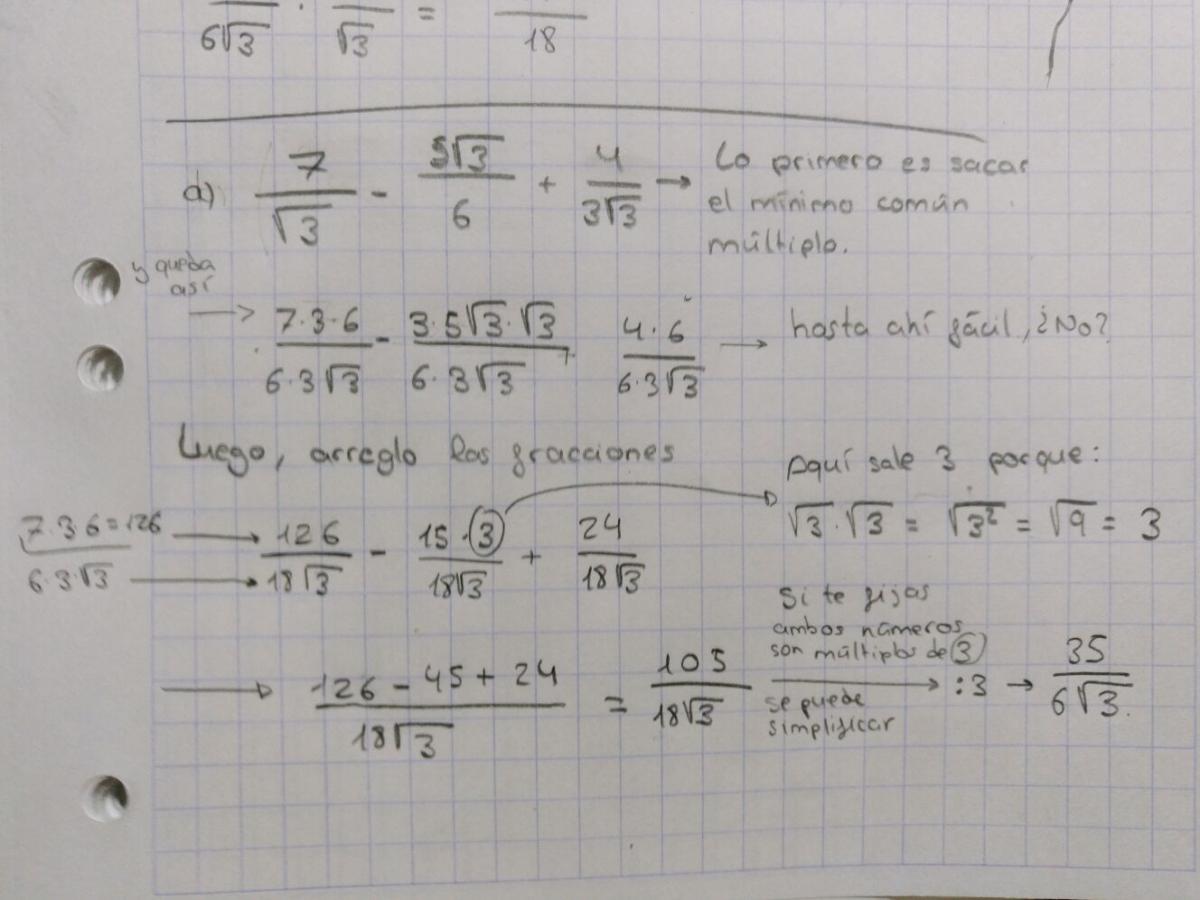 6√3 · √3 = 18
a) 7/√3 - 5√3/6 + 4/3√3 → Lo primero es sacar
el mínimo común
múltiplo.
y queda
así
→ 7·3·6/6·3√3 - 3·5√3·√3/6·3√3 + 4·6/6·3√3 → hasta ahí fácil, ¿No?
Luego, arreglo las fracciones
Aquí sale 3 porque:
√3·√3 = √3² = √9 = 3
7·3·6=126/6·3·√3 → 126/18√3 - 15·3/18√3 + 24/18√3
Si te fijas
ambos números
son múltiplos de 3
→ 126 - 45 + 24/18√3 = 105/18√3 → :3 → 35/6√3.
se puede
simplificar